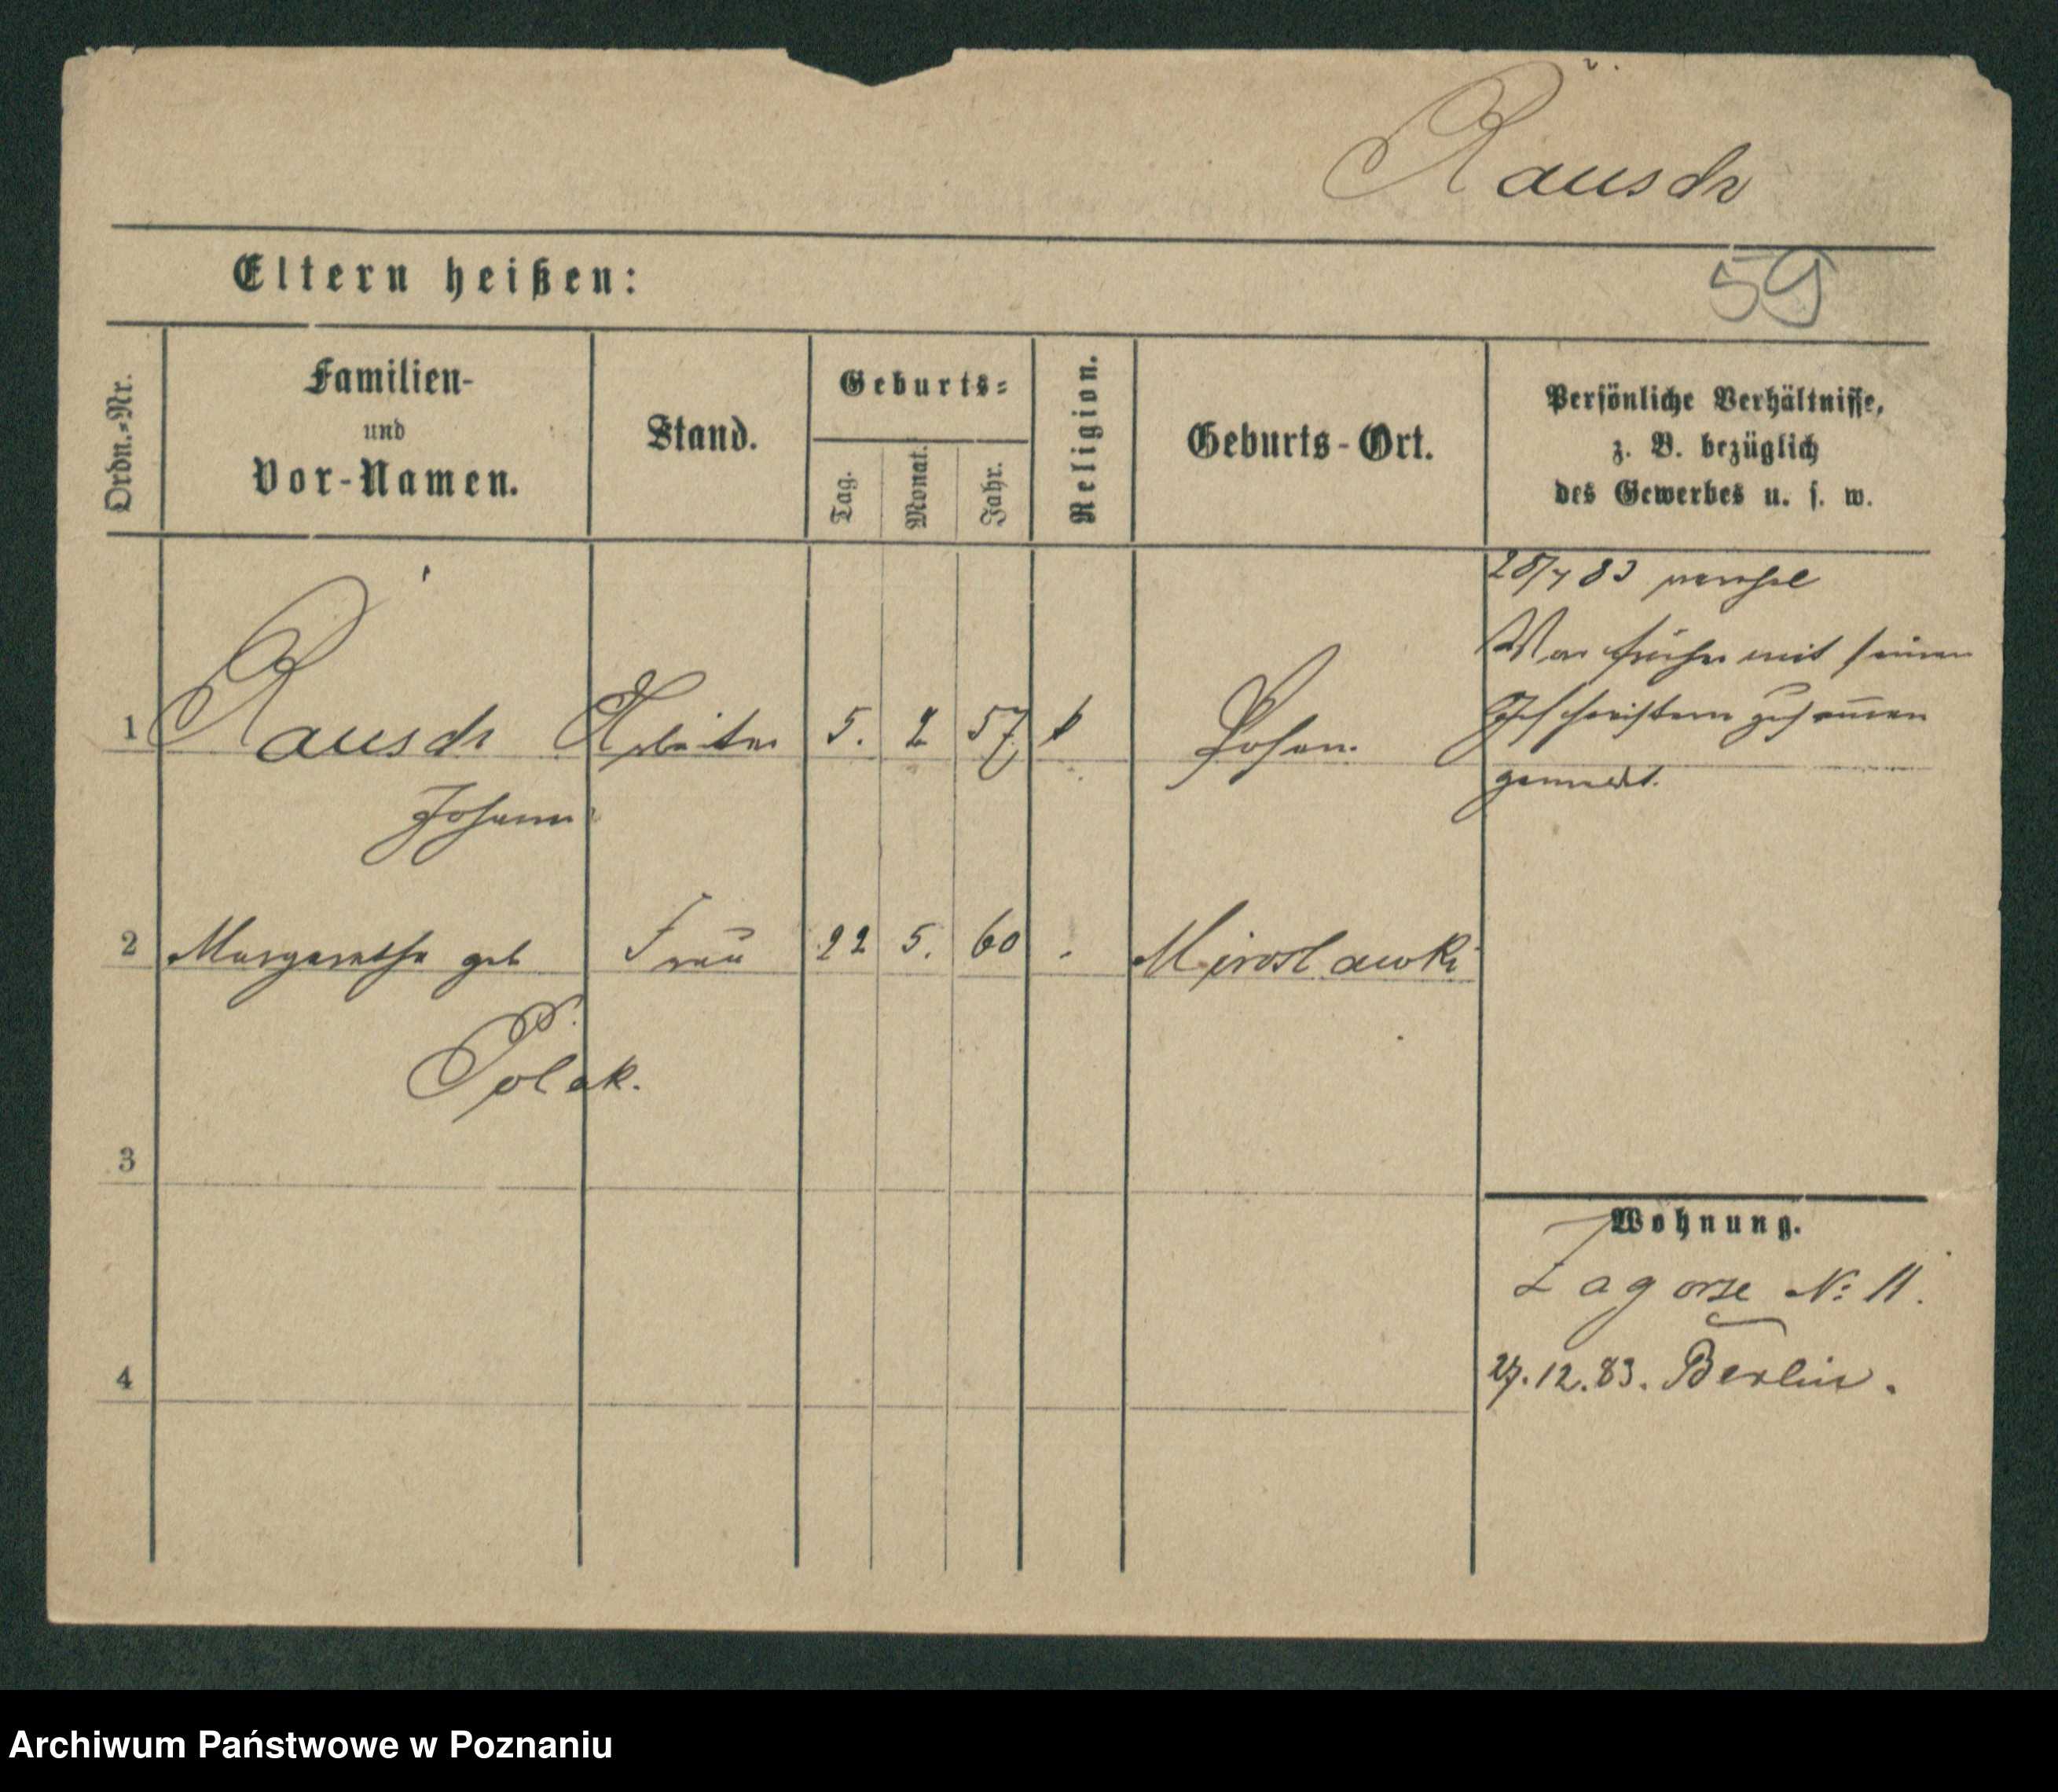 Rausch
Eltern heißen:
59
Ordn.-Nr.
Familien-
und
Vor-Namen.
Stand.
Geburts-
Tag.
Monat.
Jahr.
Religion.
Geburts-Ort.
Persönliche Verhältnisse,
z. B. bezüglich
des Gewerbes u. s. w.
83
War früher mit seinen
Geschwistern zusammen
gemeldet.
1 Rausch Arbeiter 5. 2 57 k Posen.
Johann
2 Margarethe geb Frau 22 5. 60 Miroslawki
Polak.
3
4
Wohnung.
Zagorze No 11.
27.12.83. Berlin.
Archiwum Państwowe w Poznaniu